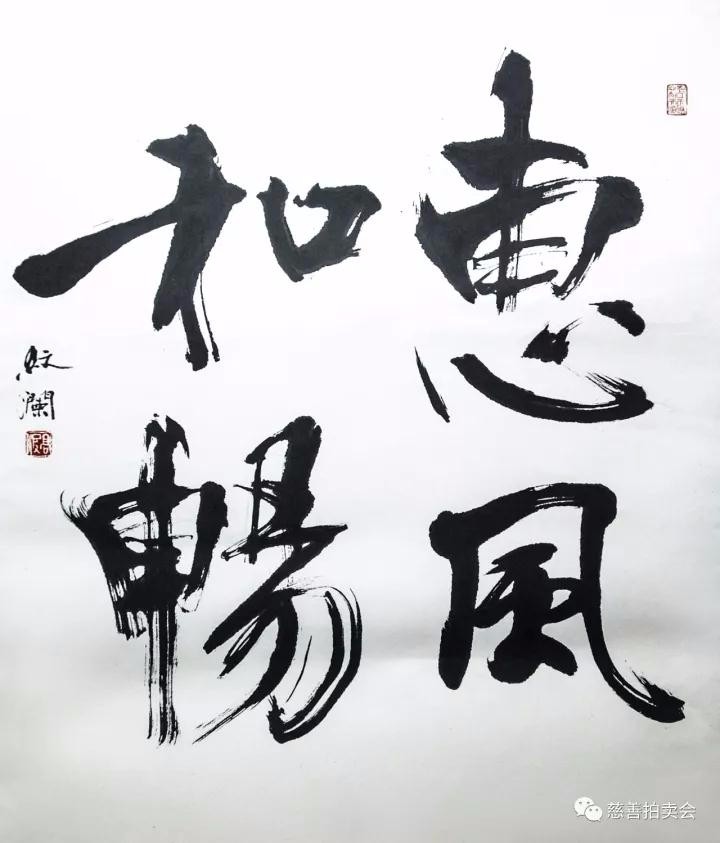 惠風
和暢
澜
慈善拍卖会